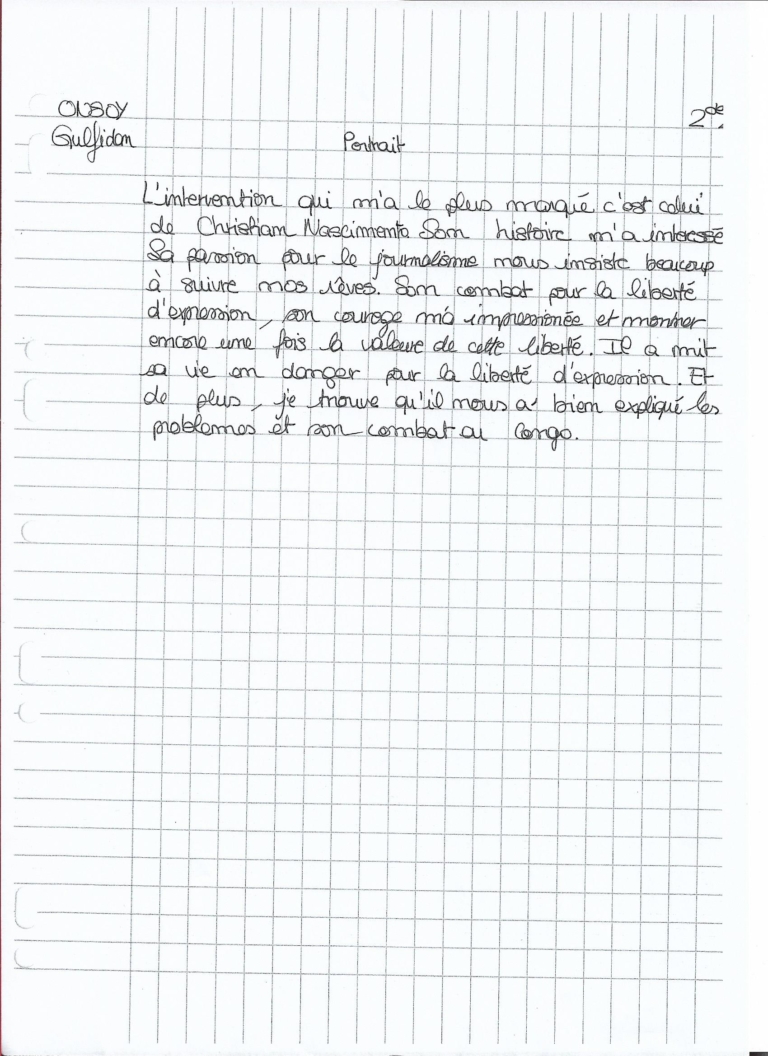 OLSOY 2de
Gulfidan Portrait
L'intervention qui m'a le plus marqué c'est celui
de Christian Nascimento Son histoire m'a interessé
Sa passion pour le journalisme nous insiste beaucoup
à suivre nos rêves. Son combat pour la liberté
d'expression, son courage m'a impressionée et montrer
encore une fois la valeure de cette liberté. Il a mit
sa vie en danger pour la liberté d'expression. Et
de plus, je trouve qu'il nous a bien expliqué les
problemmes et son combat au Congo.